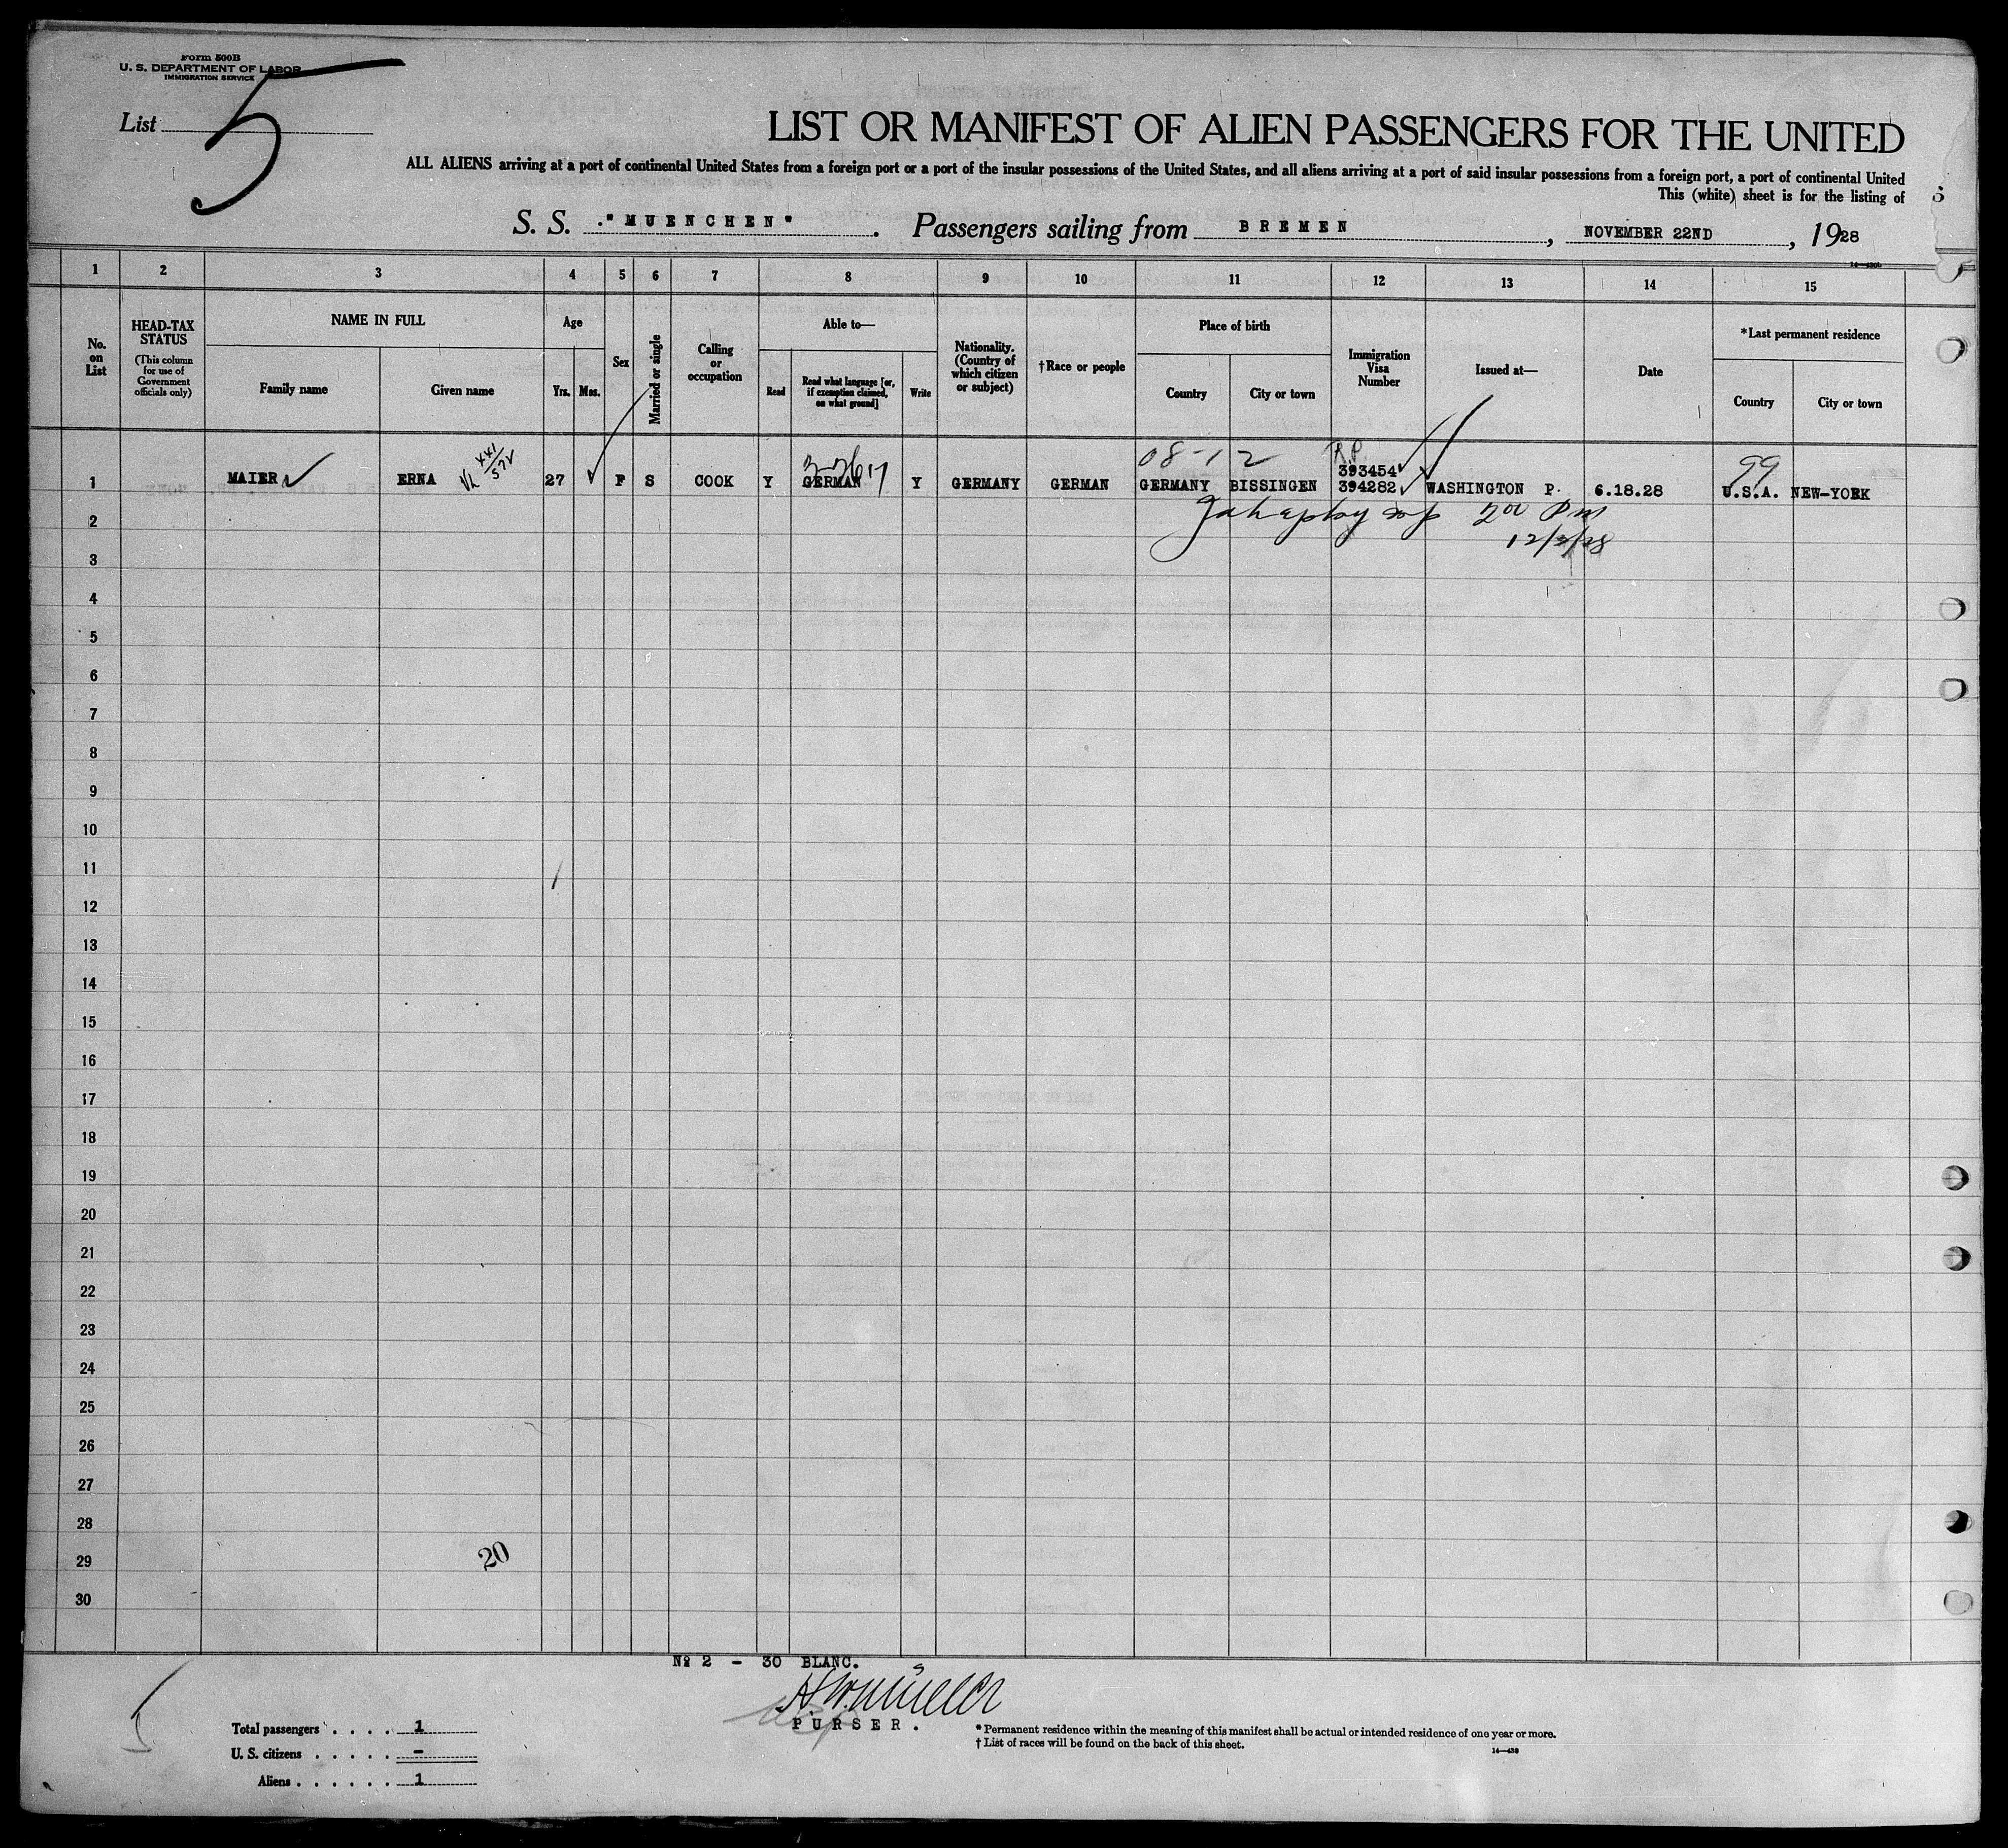 Form 500B
U. S. DEPARTMENT OF LABOR
IMMIGRATION SERVICE
List 5
LIST OR MANIFEST OF ALIEN PASSENGERS FOR THE UNITED
ALL ALIENS arriving at a port of continental United States from a foreign port or a port of the insular possessions of the United States, and all aliens arriving at a port of said insular possessions from a foreign port, a port of continental United
This (white) sheet is for the listing of
S. S. "MUENCHEN". Passengers sailing from BREMEN, NOVEMBER 22ND, 1928
1 2 3 4 5 6 7 8 9 10 11 12 13 14 15
No. on List
HEAD-TAX STATUS
(This column for use of Government officials only)
NAME IN FULL
Family name
Given name
Age
Yrs.
Mos.
Sex
Married or single
Calling or occupation
Able to—
Read
Read what language [or, if exemption claimed, on what ground]
Write
Nationality. (Country of which citizen or subject)
†Race or people
Place of birth
Country
City or town
Immigration Visa Number
Issued at—
Date
*Last permanent residence
Country
City or town
08-12 R.P. 99
393454
1 MAIER ERNA XXI/572 27 F S COOK Y GERMAN Y GERMANY GERMAN GERMANY BISSINGEN 394282 WASHINGTON P. 6.18.28 U.S.A. NEW-YORK
2 200 Pm
12/2/28
3
4
5
6
7
8
9
10
11
12
13
14
15
16
17
18
19
20
21
22
23
24
25
26
27
28
29 20
30
Nº 2 - 30 BLANC.
PURSER.
Total passengers . . . . 1
U. S. citizens . . . . . -
Aliens . . . . . . 1
* Permanent residence within the meaning of this manifest shall be actual or intended residence of one year or more.
† List of races will be found on the back of this sheet.